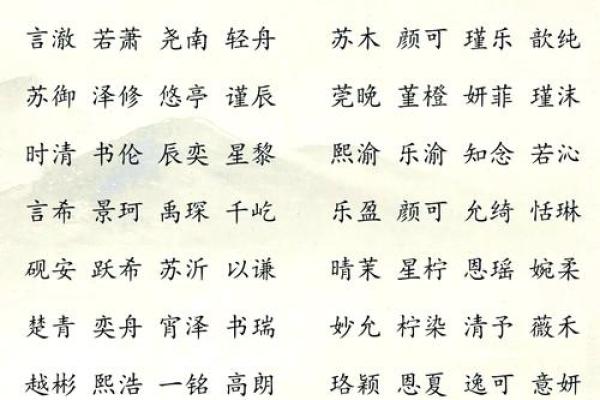 言澈 若萧 尧南 轻舟 苏木 颜可 瑾乐 歆纯
苏御 泽修 悠亭 谨辰 莞晚 堇橙 妍菲 瑾沫
时清 书伦 辰奕 星黎 熙渝 乐渝 知念 若沁
言希 景珂 禹琛 千屹 乐盈 颜可 允绮 恬琳
砚安 跃希 苏沂 以谦 晴茉 星柠 恩瑶 婉柔
楚青 奕舟 宵泽 书瑞 妙允 柠染 清予 薇禾
越彬 熙浩 一铭 高朗 珞颖 恩夏 逸可 意妍